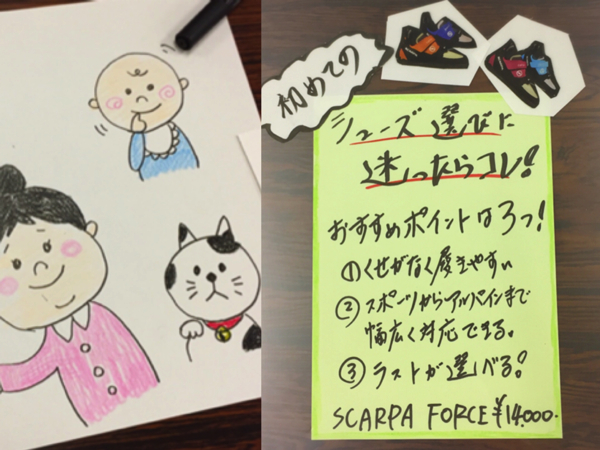 初めての
シューズ選びに
迷ったらコレ!
おすすめポイントは3つ!
①くせがなく履きやすい
②スポーツからアルパインまで
幅広く対応できる。
③ラストが選べる!
SCARPA FORCE ¥14,000.